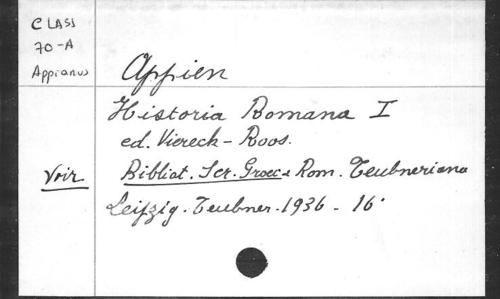 CLASS
70-A
Appianus
Appien
Historia Romana I
ed. Viereck - Roos.
Voir Bibliot. Scr. Graec. e Rom. Teubneriana
Leipzig. Teubner. 1936 - 16°